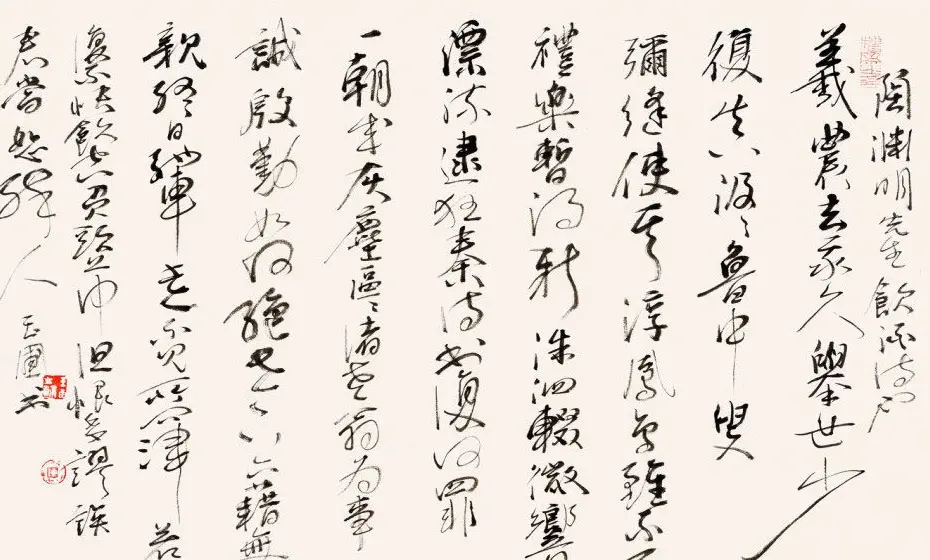 陶淵明先生飲酒詩
羲農去我久舉世少
復真汲〻魯中叟
彌縫使其淳鳳鳥雖不
禮樂暫得新洙泗輟微響
漂流逮狂秦詩書復何罪
一朝成灰塵區〻諸老翁為事
誠殷勤如何絕世下六籍無
親終日馳車走不見所問津若
復不快飲空負頭上巾但恨多謬誤
君當恕醉人